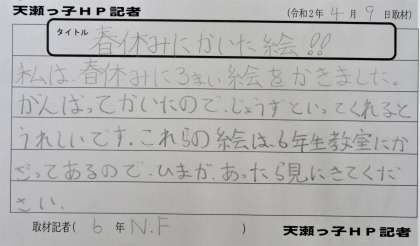 天瀬っ子HP記者
(令和2年4月9日取材)
タイトル
春休みにかいた絵!!
私は、春休みに3まい絵をかきました。
がんばってかいたので、じょうずといってくれると
うれしいです。これらの絵は、6年生教室にか
ざってあるので、ひまが、あったら見にきてくだ
さい。
取材記者( 6 年 N.F )
天瀬っ子HP記者